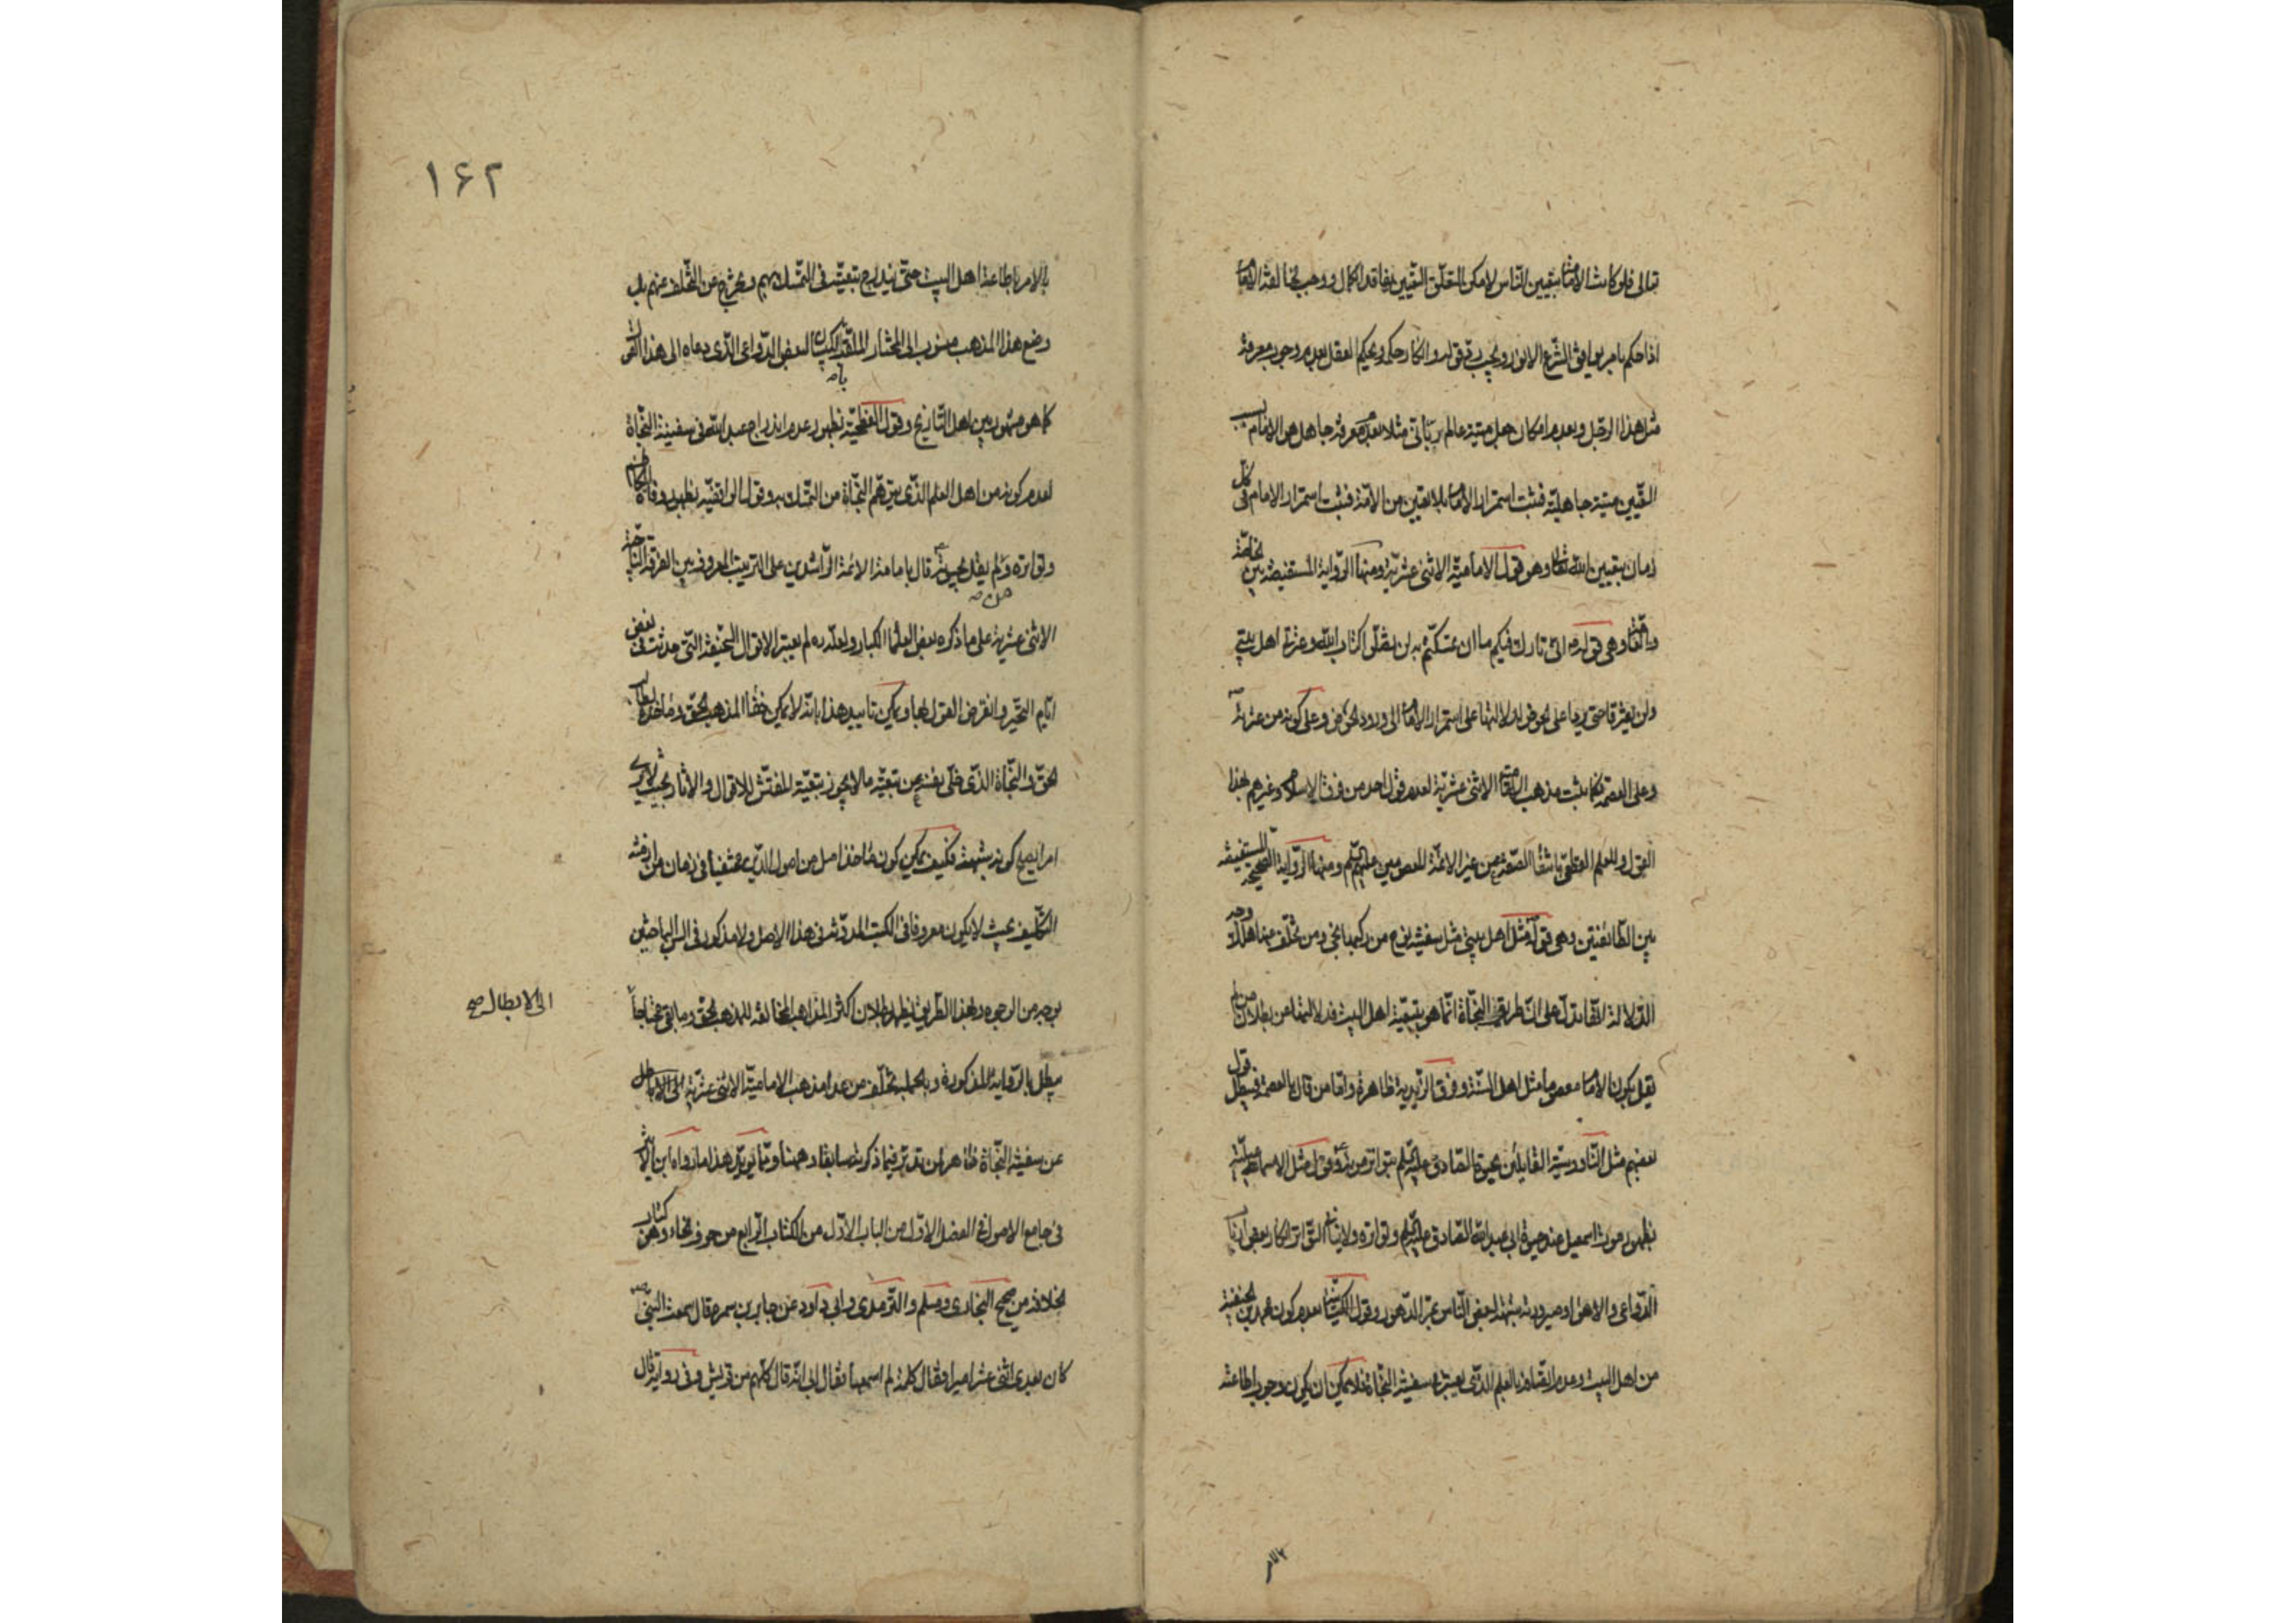 تعالى فلو كانت الامامة بتعيين الناس لامكن التعلق التعيين بفاقد الكمال ووجب مخالفة الامام
اذا حكم بامر يوافق الشرع الانور ويجب قوله وانكار حكمه ويحكم العقل بعدم وجوب معرفة
مثل هذا الرجل وبعدم امكان جعل ميتة عالم رباني مثلا بعدم معرفة جاهل هو الامام بسبب
التعيين ميتة جاهلية فثبت استمرار الامامة بلا تعيين من الامة فثبت استمرار الامام في كل
زمان بتعيين الله تعالى وهو قول الامامية الاثنى عشرية ومنها الرواية المستفيضة بين الخاصة
والعامة وهي قوله اني تارك فيكم ما ان تمسكتم به لن تضلوا كتاب الله وعترتي اهل بيتي
ولن يفترقا حتى يردا على الحوض لدلالتها على استمرار الامامة الى ورود الحوض وعلى كونه من عترته
وعلى العصمة كما يثبت مذهب الامامية الاثنى عشرية لعدم قول احد من فرق الاسلام وغيرهم بهذا
القول وللعلم القطعي بانتفاء العصمة من غير الائمة المعصومين عليهم السلم ومنها الرواية الصحيحة المستفيضة
بين الطائفتين وهي قوله مثل اهل بيتي مثل سفينة نوح من ركبها نجى ومن تخلف عنها هلك ووجه
الدلالة انها تدل على ان طريق النجاة انما هو بتبعية اهل البيت فدلالتها على بطلان من لم
يقل بكون الامام معصوما مثل اهل السنة وفرق الزيدية ظاهرة واما من قال بالعصمة فيبطل قول
بعضهم مثل الناووسية القايلين بحيوة الصادق عليه السلم بتواتر موته وقول مثل الاسماعيلية
بظهور موت اسمعيل عند حيوة ابي عبد الله الصادق عليه السلم وتواتره ولا ينافي التواتر انكار بعض ارباب
الدواعي والاهواء وصيرورته شبهة لبعض الناس بمر الدهور وقول الكيسانية بعدم كون محمد بن الحنفية
من اهل البيت وعدم اتصافه بالعلم الذي يعتبر في سفينة النجاة فلا يمكن ان يكون وجوب اطاعته
١٦٢
بالامر باطاعة اهل البيت حتى يندرج تبعيته في التمسك بهم ويخرج من التخلف عنهم بل
وضع هذا المذهب منسوب الى المختار الملقب بكيسان لبعض الدواعي الذي دعاه الى هذا القول
كما هو مشهور بين اهل التاريخ وقول الفطحية بظهور عدم اندراج عبد الله في سفينة النجاة
لعدم كونه من اهل العلم الذي يتوهم النجاة من التمسك به وقول الواقفية بظهور وفاة الكاظم
وتواتره ولم يقل بحيوته من قال بامامة الائمة الراشدين على الترتيب المعروف بين الفرقة الناجية
الاثنى عشرية على ما ذكره بعض العلماء الكبار ولعله ره لم يعتبر الاقوال السخيفة التي حدثت في بعض
ايام التحير وانقرض القول بها ويمكن تاييد هذا بانه لا يمكن خفاء المذهب الحق ومأخذه لطالب
الحق والنجاة الذي خلى نفسه عن تبعية ما لا يجوز تبعيته المفتش للاقوال والاثار بحيث لا يرى
امرا يصح كونه شبهة فكيف يمكن كون مأخذ اصل من اصول الدين مختفيا في زمان من ازمنة
التكليف بحيث لا يكون معروفا في الكتب المدونة في هذا الاصل ولا مذكورا في السن الباحثين
بوجه من الوجوه وبهذا الطريق يظهر بطلان اكثر المذاهب المخالفة للمذهب الحق وما بقي محتاجا
الى الابطال صح
يبطل بالرواية المذكورة وبالجملة تخلف من عدا مذهب الامامية الاثنى عشرية
عن سفينة النجاة ظاهر لمن تدبر فيما ذكرته سابقا وههنا ومما يؤيد هذا ما رواه ابن الاثير
في جامع الاصول في الفصل الاول من الباب الاول من الكتاب الرابع من حرف الخاء وهو كتاب
الخلافة من صحيح البخاري ومسلم والترمذي وابي داود عن جابر بن سمرة قال سمعت النبي
كان بعدي اثنى عشر اميرا فقال كلمة لم اسمعها فقال ابي انه قال كلهم من قريش وفي رواية قال